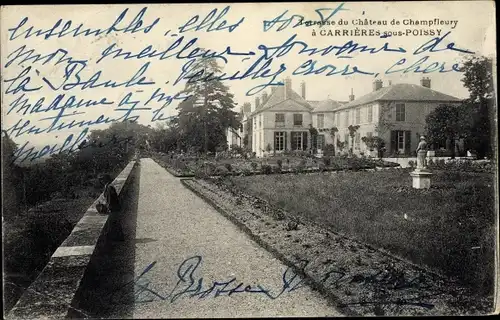 Terrasse du Château de Champfleury
à CARRIÈRES sous-POISSY
ensembles, elles sont
mon meilleur souvenir de
la Baule Veuillez croire, chère
Madame à mes
sentiments les
meilleurs